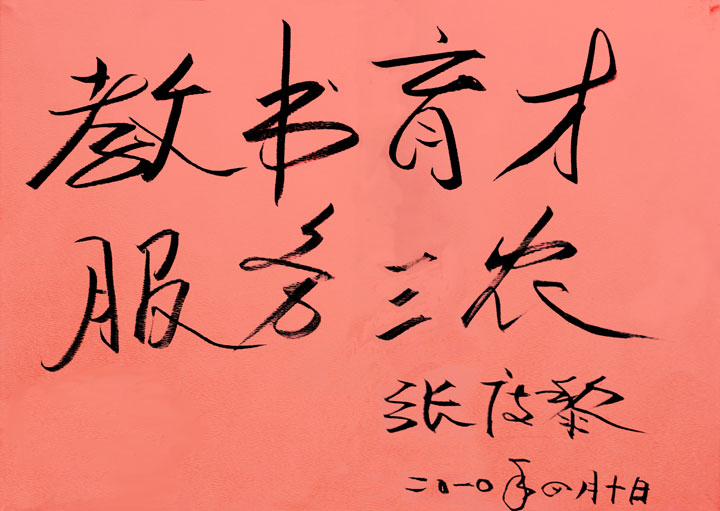 教书育才
服务三农
张庆黎
二〇一〇年四月十日